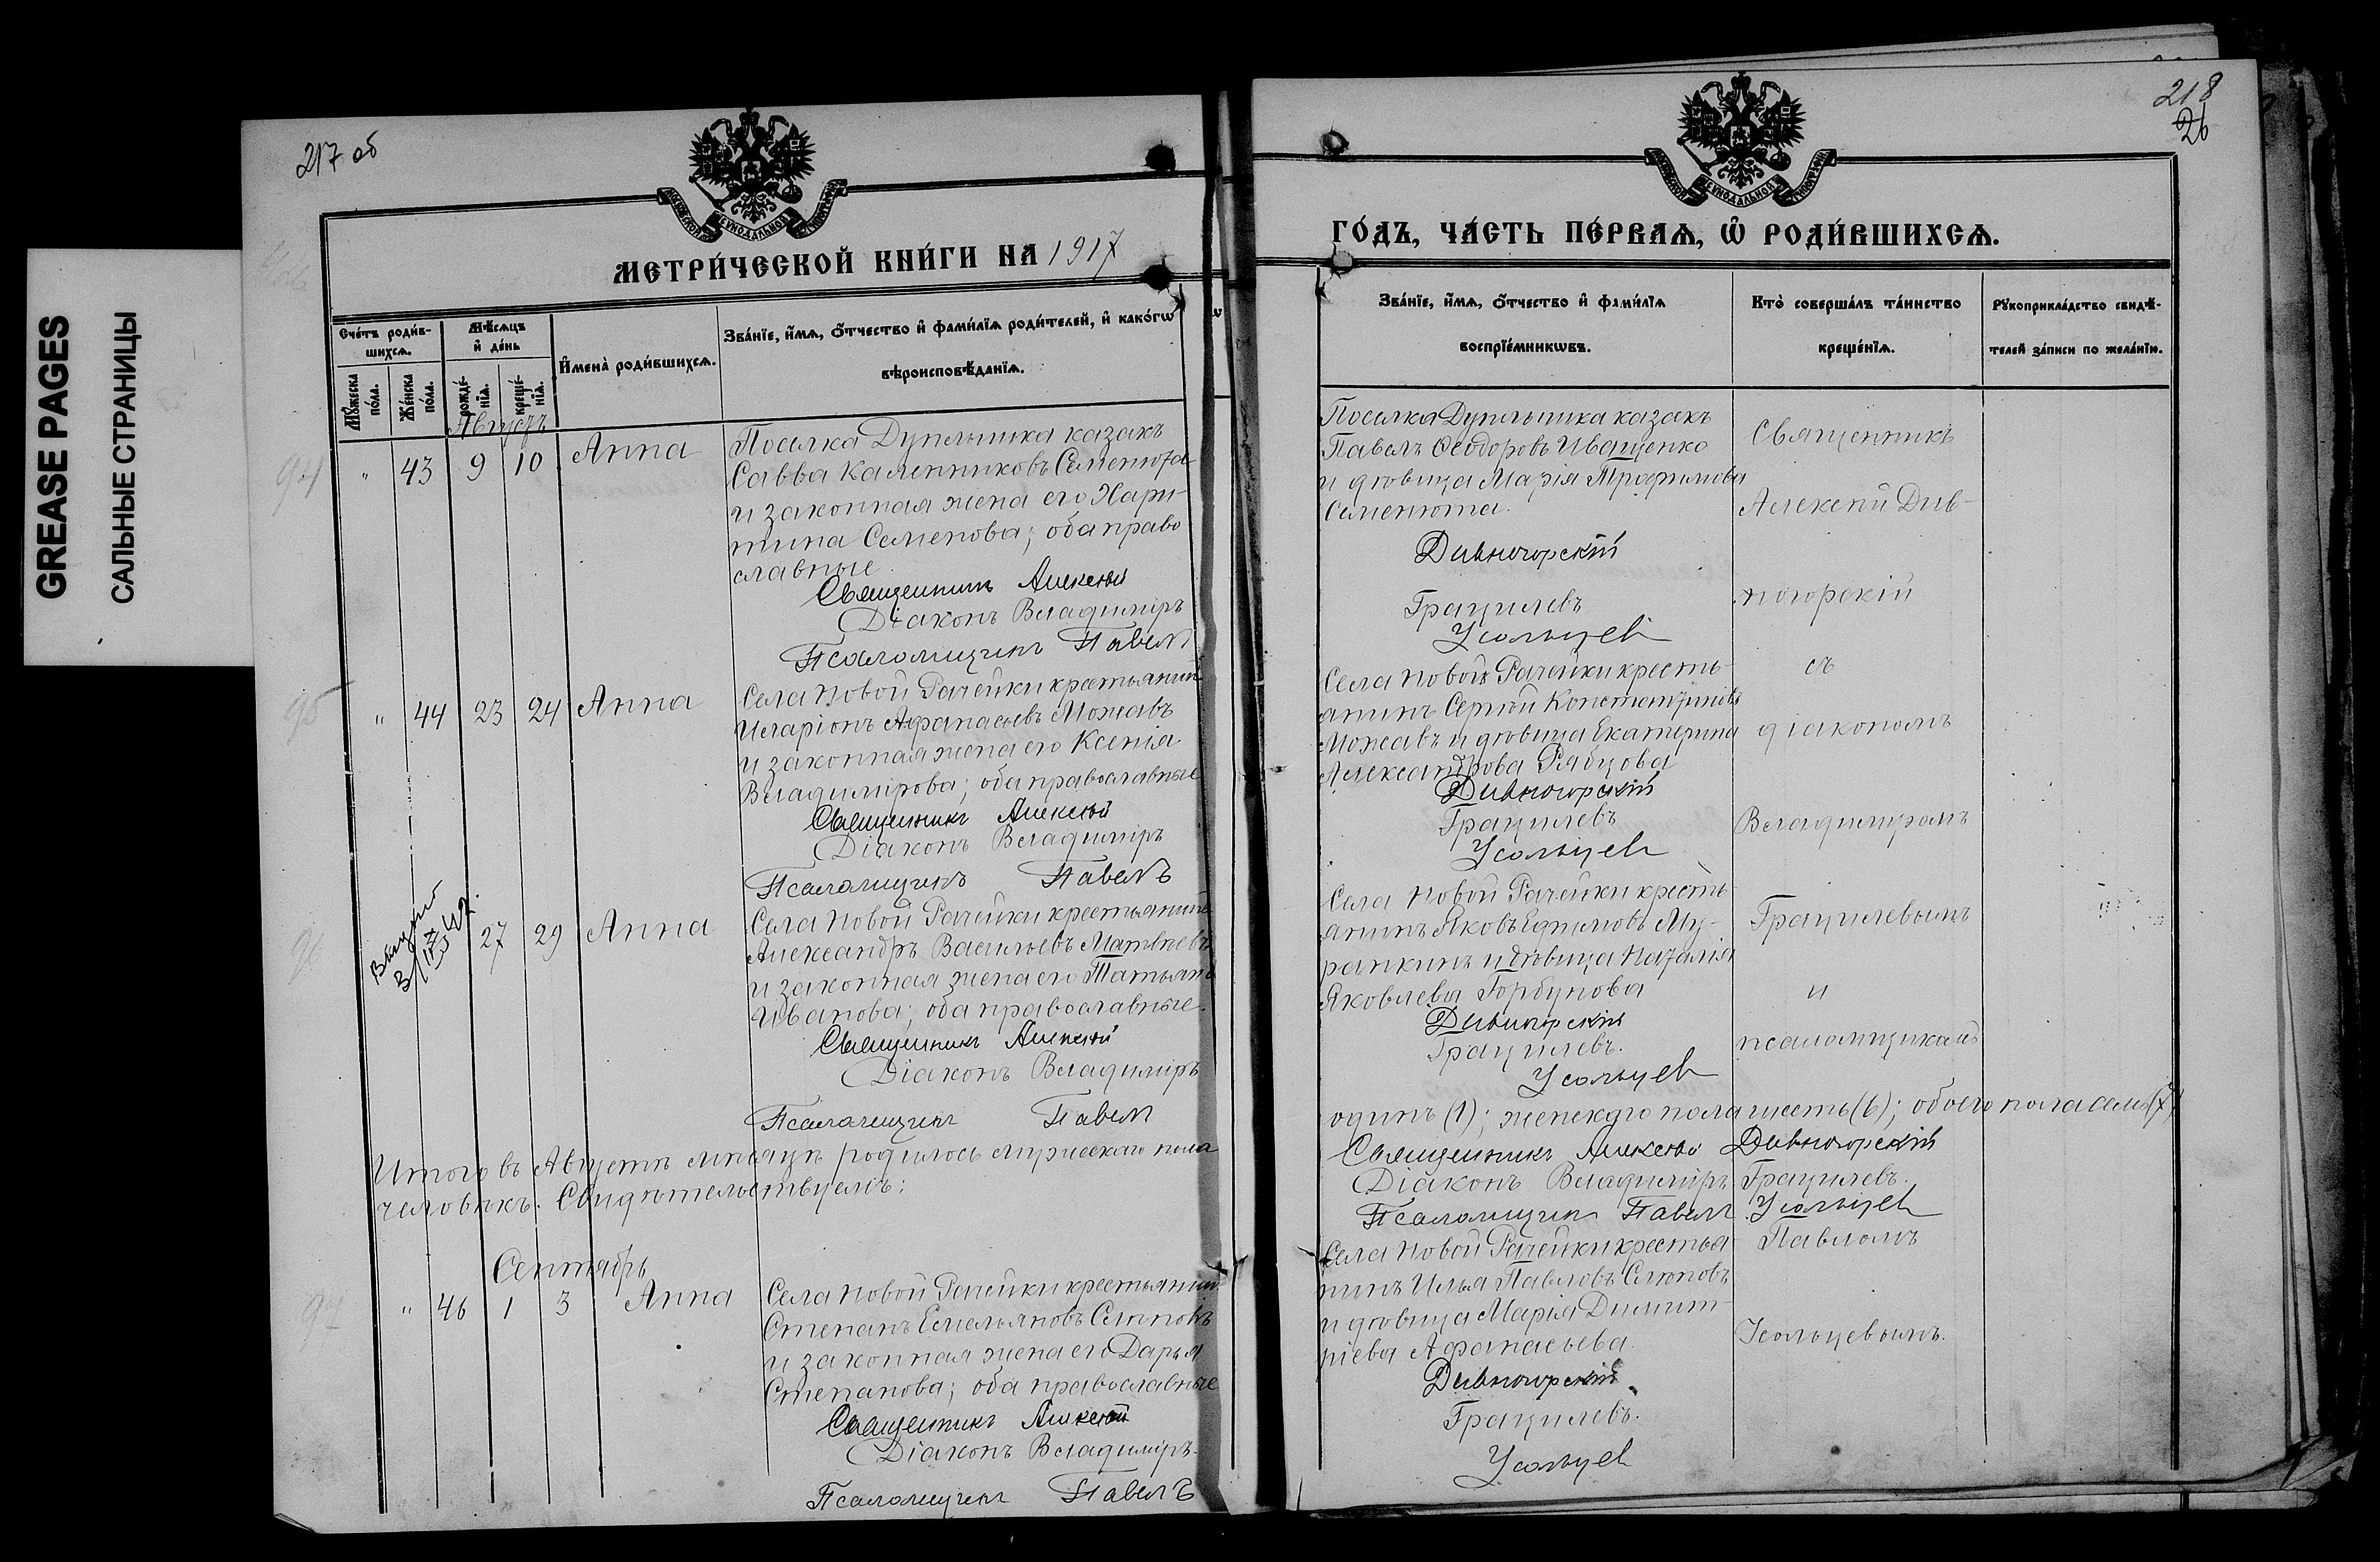 GREASE PAGES
САЛЬНЫЕ СТРАНИЦЫ
217 об
МЕТРИ́ЧЕСКОЙ КНИ́ГИ НА 1917
Сче́тъ роди́в-
шихсѧ.
Мѣ́сѧцъ
и҆ де́нь
Мꙋ́жеска
по́ла.
Же́нска
по́ла.
рожде́-
нїѧ.
креще́-
нїѧ.
И҆мена̀ роди́вшихсѧ.
Зва́нїе, и҆́мѧ, ѻ҆́тчество и҆ фами́лїѧ роди́телей, и҆ како́гѡ
вѣроисповѣ́данїѧ.
Августъ
94 " 43 9 10 Анна
Поселка Дупленька казакъ
Савва Каленниковъ Семенюта
и законная жена его Хари-
тина Семенова; оба право
славные
Священникъ Алексѣй
Діаконъ Владиміръ
Псаломщикъ Павелъ
95 " 44 23 24 Анна
Села Новой Рачейки крестьянинъ
Иларіонъ Афанасьевъ Можаевъ
и законная жена его Ксенія
Владимірова; оба православные
Священникъ Алексѣй
Діаконъ Владиміръ
Псаломщикъ Павелъ
27 29 Анна
Села Новой Рачейки крестьянинъ
Александръ Васильевъ Матвѣевъ
и законная жена его Татьяна
Иванова; оба православные.
Священникъ Алексѣй
Діаконъ Владиміръ
Псаломщикъ Павелъ
Итого въ Августѣ мѣсяцѣ родилось мужескаго пола
человѣкъ. Свидѣтельствуемъ:
Сентябрь
" 46 1 3 Анна
Села Новой Рачейки крестьянинъ
Степанъ Емельяновъ Слюповъ
и законная жена его Дарья
Степанова; оба православные
Священникъ Алексѣй
Діаконъ Владиміръ.
Псаломщикъ Павелъ
218
26
ГО́ДЪ, ЧА́СТЬ ПЕ́РВАѦ, Ѡ҆ РОДИ́ВШИХСѦ.
Зва́нїе, и҆́мѧ, ѻ҆́тчество и҆ фами́лїѧ
воспрїе́мникѡвъ.
Кто̀ соверша́лъ та́инство
креще́нїѧ.
Рꙋкоприкла́дство свидѣ́-
телей за́писи по жела́нїю.
Поселка Дупленька казакъ
Павелъ Ѳеодоровъ Иващенко
и дѣвица Марія Трофимова
Семенюта.
Дивногорскій
Грацилевъ
Усольцевъ
Села Новой Рачейки кресть-
янинъ Сергѣй Константиновъ
Можаевъ и дѣвица Екатерина
Александрова Рябцова
Дивногорскій
Грацилевъ
Усольцевъ
Села Новой Рачейки кресть-
янинъ Яковъ Ефимовъ Му-
ранкинъ и дѣвица Наталія
Яковлева Горбунова
Дивногорскій
Грацилевъ.
Усольцевъ
одинъ (1); женскаго пола шесть (6); обоего пола семь (7)
Священникъ Алексѣй Дивногорскій
Діаконъ Владиміръ Грацилевъ.
Псаломщикъ Павелъ Усольцевъ
Села Новой Рачейки крестья-
нинъ Илья Павловъ Слюповъ
и дѣвица Марія Димит-
ріева Афанасьева.
Дивногорскій
Грацилевъ.
Усольцевъ
Священникъ
Алексѣй Див-
ногорскій
съ
діакономъ
Владиміромъ
Грацилевымъ
и
псаломщикомъ
Павломъ
Усольцевымъ.